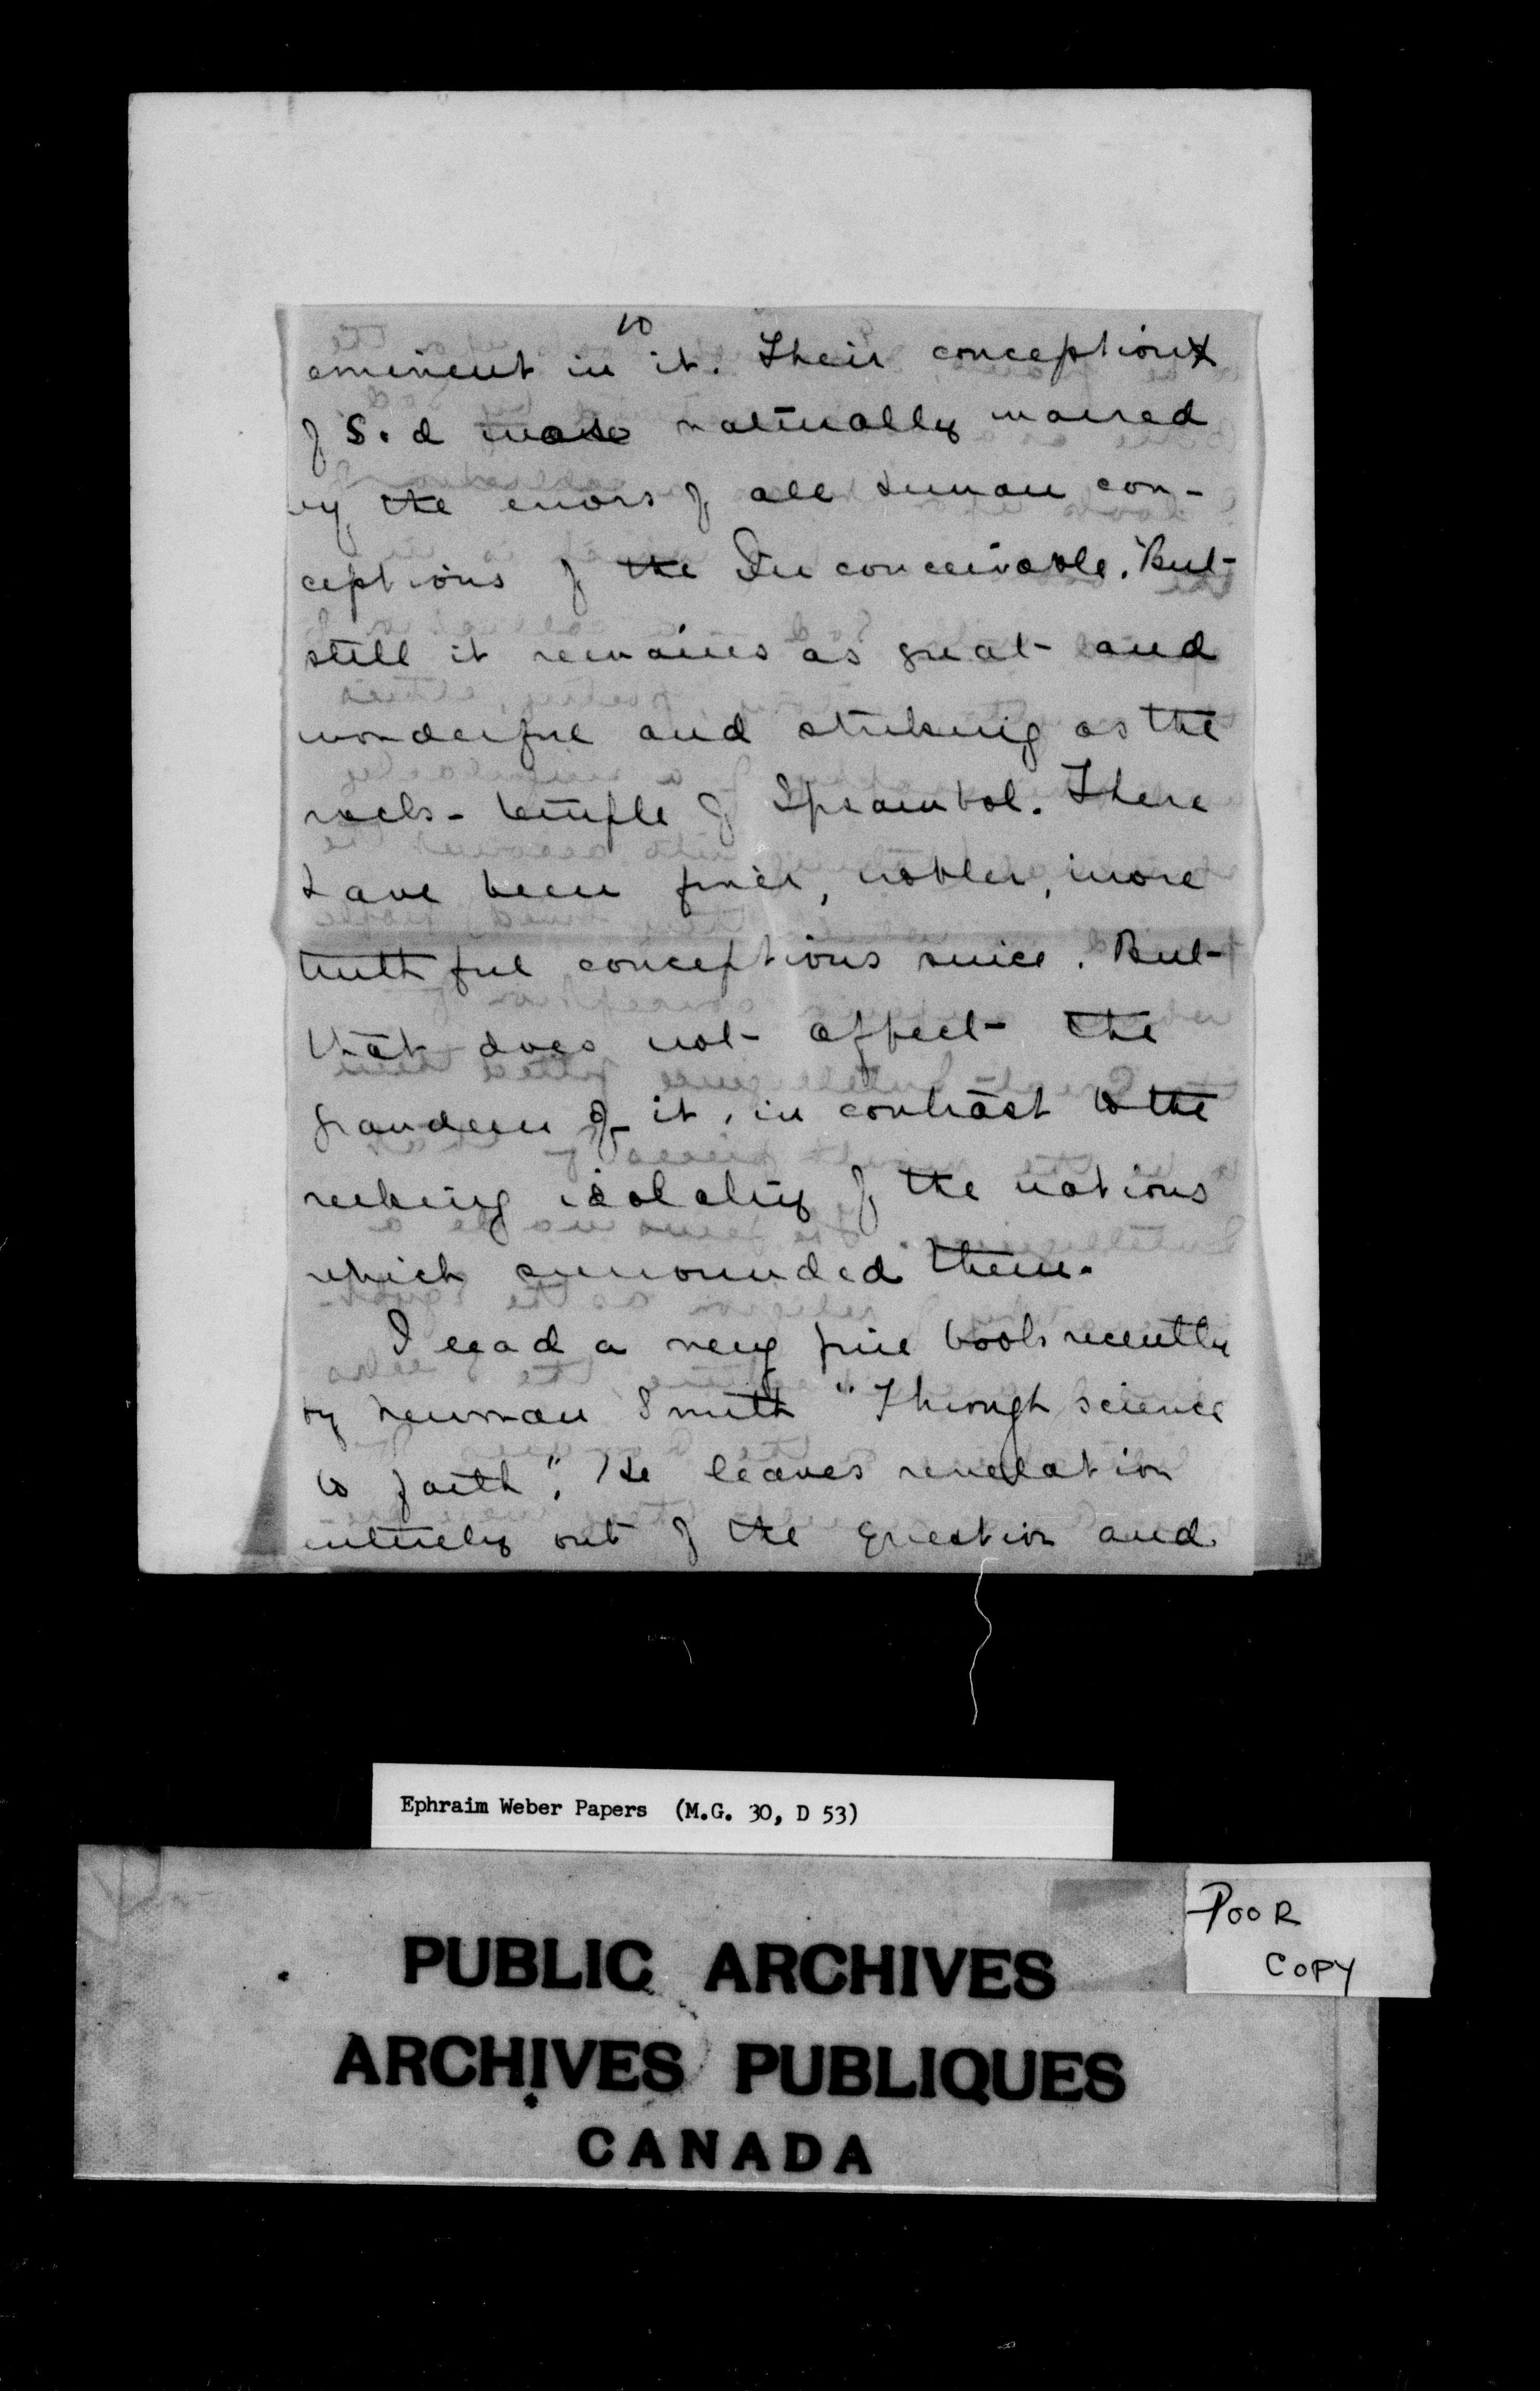 10
eminent in it. Their conception
of God was naturally marred
by the errors of all human con-
ceptions of the Inconceivable. But
still it remains as great and
wonderful and striking as the
rock-temple of Ipsambol. There
have been finer, nobler, more
truthful conceptions since. But
that does not affect the
grandeur of it, in contrast to the
reeking idolatry of the nations
which surrounded them.
I read a very fine book recently
by Newman Smith "Through science
to faith". He leaves revelation
entirely out of the question and
Ephraim Weber Papers (M.G. 30, D 53)
POOR
COPY
PUBLIC ARCHIVES
ARCHIVES PUBLIQUES
CANADA